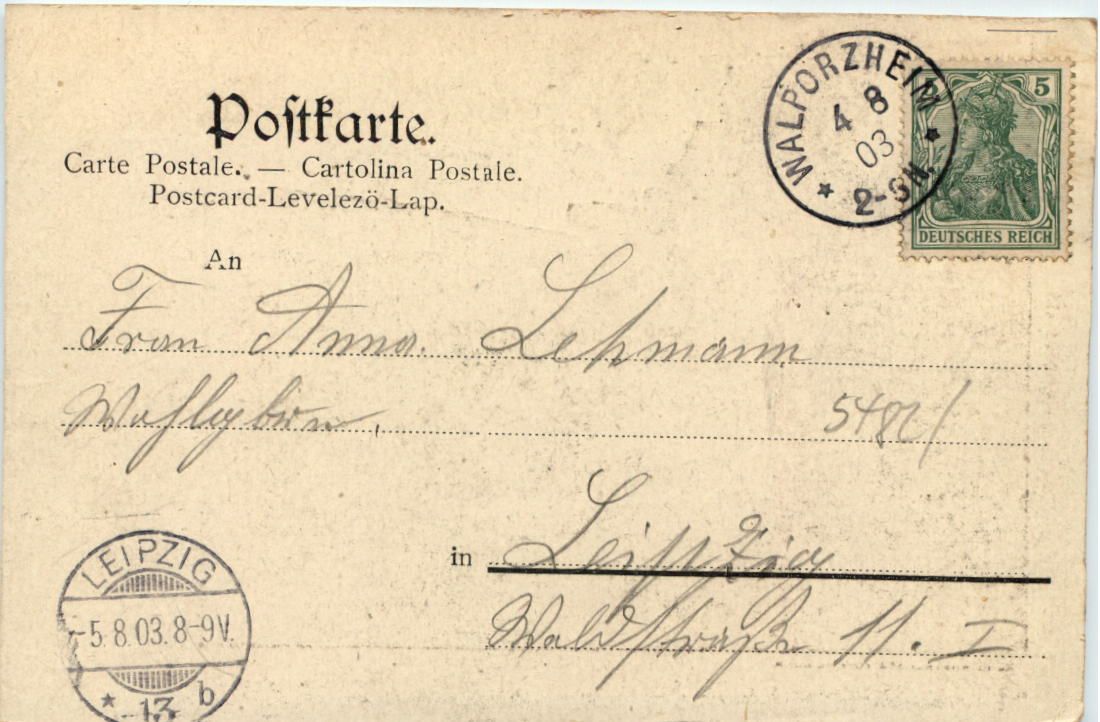 Postkarte.
Carte Postale. — Cartolina Postale.
Postcard-Levelezö-Lap.
WALPORZHEIM
4 8
03
2-3N.
5
DEUTSCHES REICH
An
Frau Anna Lehmann
Wohlgeboren,
in Leipzig
Waldstraße 11. I
LEIPZIG
-5.8.03.8-9V.
* 13 b